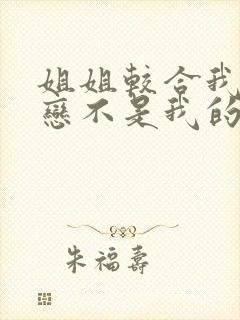 姐姐較合我
戀不是我的
朱福壽